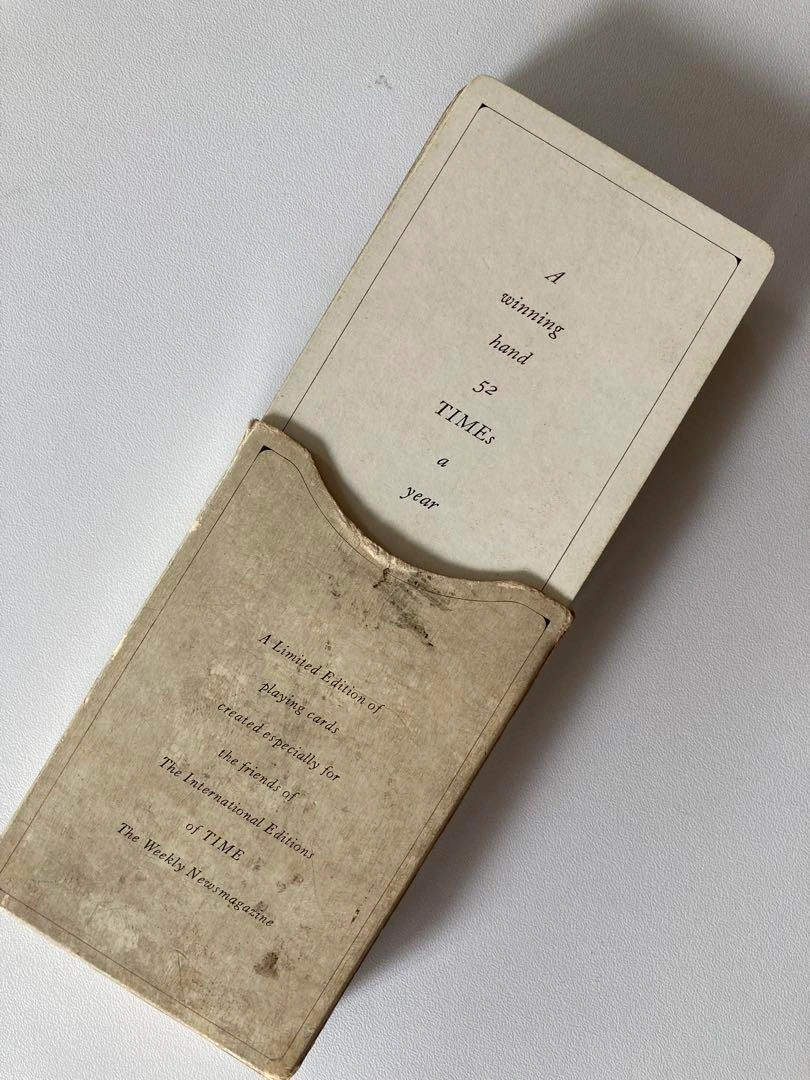 A
winning
hand
52
TIMEs
a
year
A Limited Edition of
playing cards
created especially for
the friends of
The International Editions
of TIME
The Weekly Newsmagazine